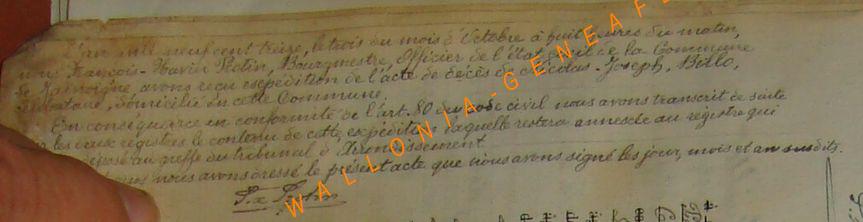 L'an mil neuf cent treize, le trois du mois d'Octobre à huit heures du matin,
nous François-Xavier Pestin, Bourgmestre, Officier de l'état civil de la Commune
de Jamoigne avons reçu expédition de l'acte de décès de Nicolas-Joseph, Billo,
célibataire, domicilié en cette Commune.
En conséquence en conformité de l'art. 80 du code civil nous avons transcrit de suite
sur les deux registres le contenu de cette expédition laquelle restera annexée au registre qui
déposé au greffe du tribunal d'Arrondissement
nous avons dressé le présent acte que nous avons signé les jour, mois et an susdits.
WALLONIA-GENEAF